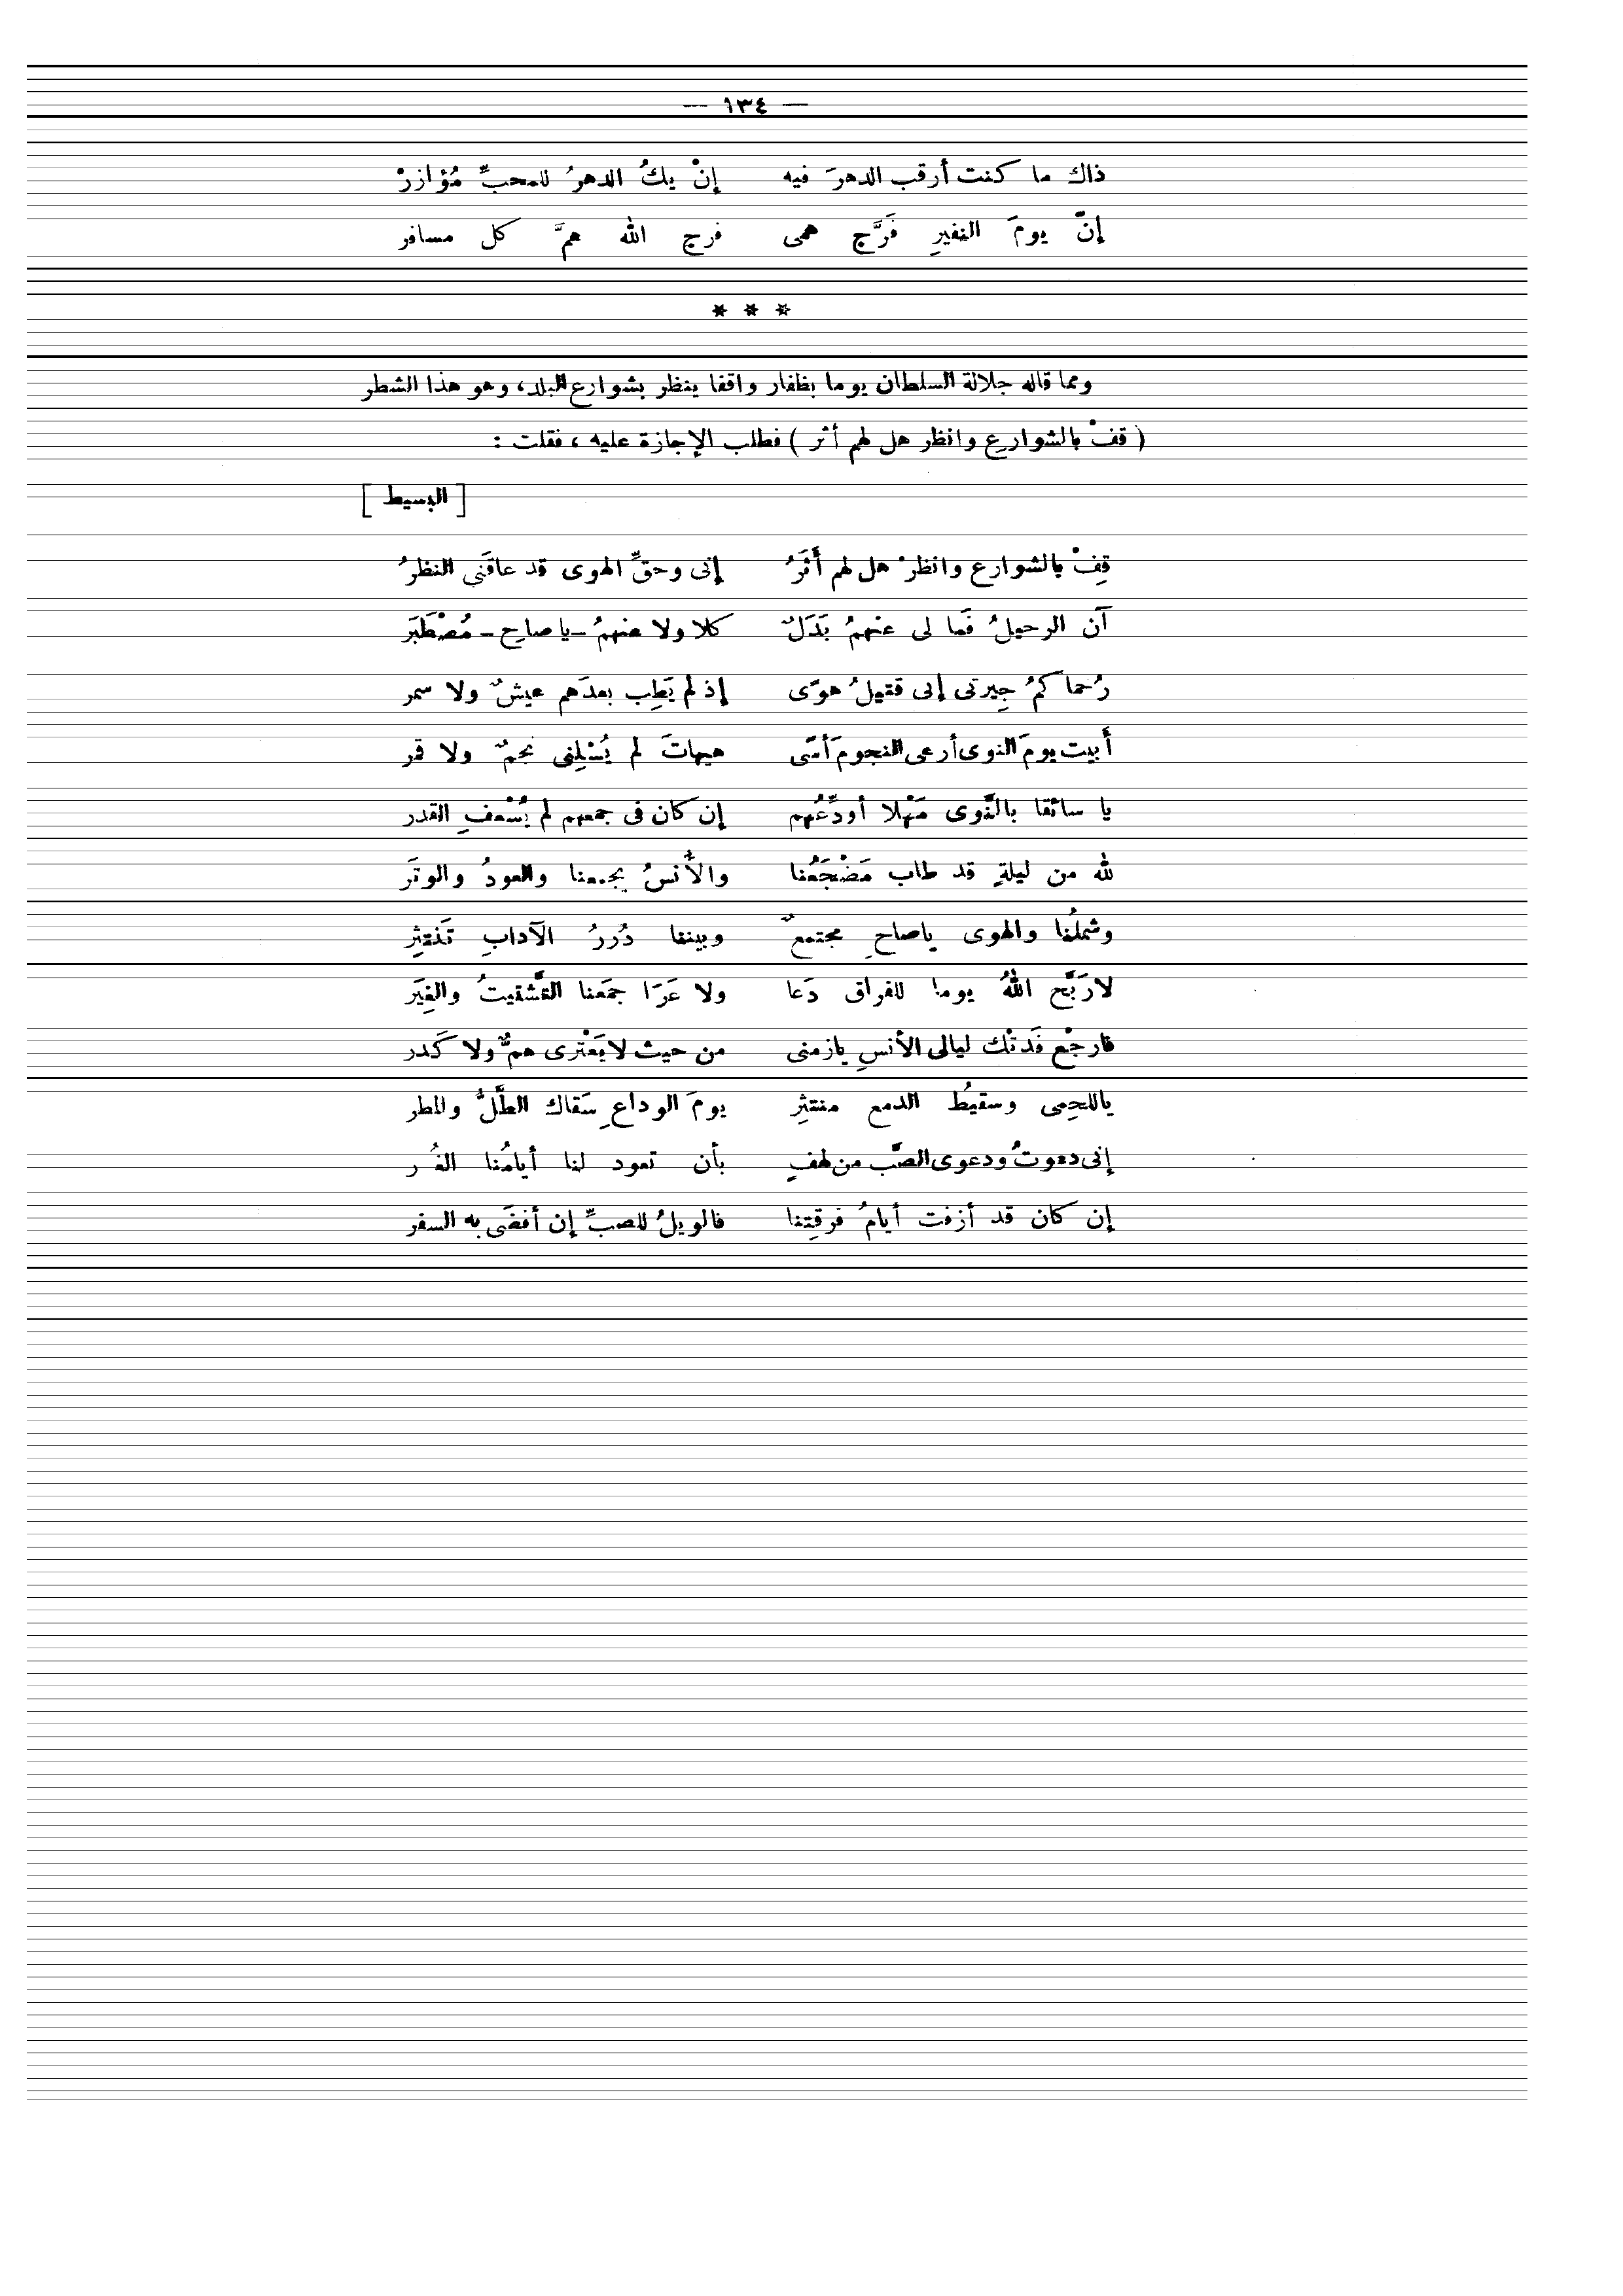 — ١٣٤ —
ذاك ما كنت أرقب الدهرَ فيه إنْ يكُ الدهرُ للمحبِّ مُؤازرْ
إنّ يومَ النفيرِ فَرَّج همى فرج الله همَّ كل مسافر
* * *
ومما قاله جلالة السلطان يوما بظفار واقفا ينظر بشوارع البلد، وهو هذا الشطر
( قفْ بالشوارع وانظر هل لهم أثر ) فطلب الإجازة عليه ، فقلت :
[ البسيط ]
قِفْ بالشوارع وانظرْ هل لهم أَثَرُ إنى وحقِّ الهوى قد عاقَنى النظرُ
آن الرحيلُ فَما لى عنهمُ بَدَلٌ كلا ولا عنهمُ ـ يا صاحِ ـ مُصْطَبَر
رُحماكمُ جِيرتى إنى قتيلُ هوًى إذ لم يَطِب بعدَهم عيشٌ ولا سمر
أَبيت يومَ النوى أرعى النجومَ أسًى هيهاتَ لم يُسْلِنى نجمٌ ولا قمر
يا سائقا بالنَّوى مَهْلا أودِّعُهم إن كان فى جمعهم لم يُسْعفِ القدر
لله من ليلةٍ قد طاب مَضْجَعُنا والأُنسُ يجمعنا والعودُ والوتَر
وشملُنا والهوى ياصاحِ مجتمعٌ وبيننا دُررُ الآدابِ تَنتثِر
لا رَبَّح اللهُ يوما للفراق دَعا ولا عَرَا جمَعنا التَّشتيتُ والغِيَر
فارجْع فَدتْك ليالى الأنسِ يازمنى من حيث لا يَعْترى همٌّ ولا كَدر
ياللحِمى وسقيطُ الدمع منتثِر يومَ الوداعِ سَقاك الطَّلُّ والمطر
إنى دعوتُ ودعوى الصَّب من لهفٍ بأن تعود لنا أيامُنا الغُر
إن كان قد أزفت أيامُ فرقتِنا فالويلُ للصبِّ إن أفضَى به السفر